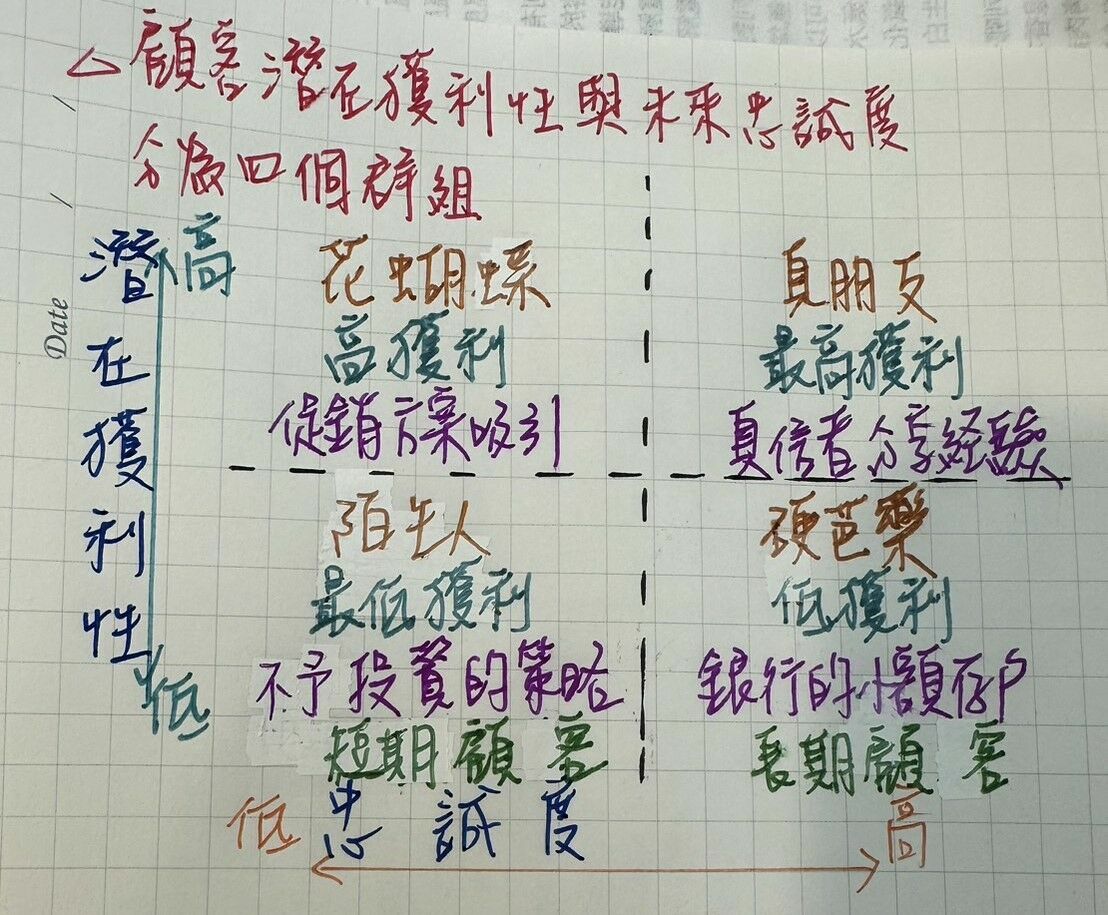 △顧客潛在獲利性與未來忠誠度
分為四個群組
Date
潛在獲利性
高
低
花蝴蝶
高獲利
促銷方案吸引
真朋友
最高獲利
真信者分享經驗
陌生人
最低獲利
不予投資的策略
短期顧客
硬芭樂
低獲利
銀行的小額存戶
長期顧客
低 忠誠度 高